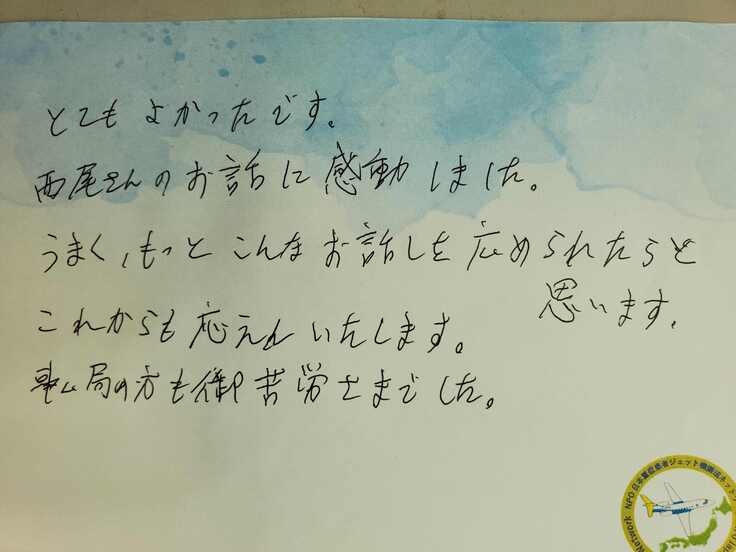 とてもよかったです。
西尾さんのお話に感動しました。
うまく、もっとこんなお話しを広められたらと
思います。
これからも応えんいたします。
事ム局の方も御苦労さまでした。
NPO 日本重症患者ジェット機搬送ネットワーク
Network